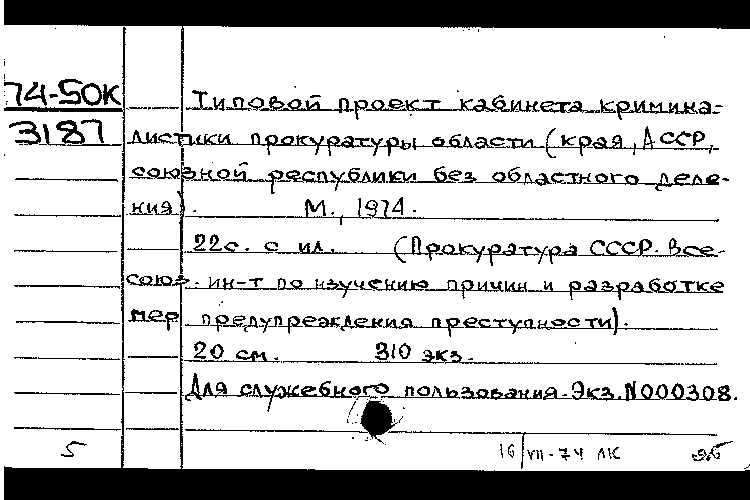 74-50К
3187
Типовой проект кабинета кримина-
листики прокуратуры области (края, АССР,
союзной республики без областного деле-
ния). М., 1974.
22с. с ил. (Прокуратура СССР. Все-
союз. ин-т по изучению причин и разработке
мер предупреждения преступности).
20 см. 310 экз.
Для служебного пользования. Экз. N000308.
5 16/VII-74 ЛК